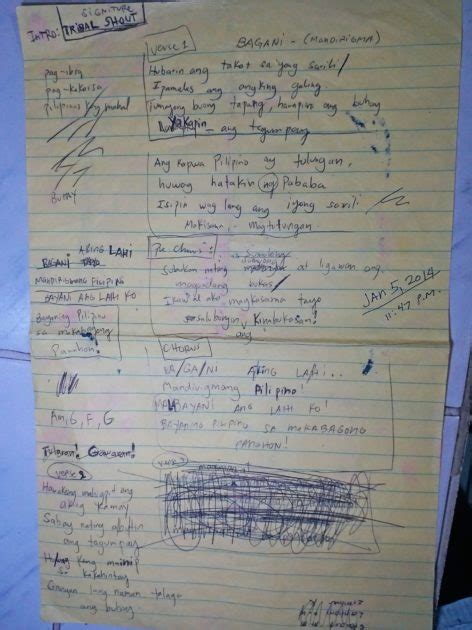 SIGNITURE
INTRO: TRIBAL SHOUT
BAGANI - (MANDIRIGMA)
Verse 1
Hubarin ang takot sa iyong sarili
Ipamalas ang angking galing
buong tapang, hanapin ang buhay
Yakapin ang tagumpay
Ang kapwa Pilipino ay tulungan,
huwag hatakin ng Pababa
Isipin wag lang ang iyong sarili
Makiisa, - magtulungan
pag-ibig
pag-kakaisa
pilipinas kong mahal
BUHAY
Pre Chorus:
Subukan nating at ligawan ang
bukas
Ikaw at ako, magkasama tayo
salubungin ang Kinabukasan!
Jan. 5, 2014
11:47 P.M.
AKING LAHI
BAGANI
MANDIRIGMANG PILIPINO
BAYANI ANG LAHI KO
Bayaning Pilipino
sa makabagong
Panahon!
CHORUS
BA/GA/NI AKING LAHI..
Mandirigmang Pilipino!
BAYANI ANG LAHI KO!
BAYANING PILIPINO SA MAKABAGONG
PANAHON!
Am, G, F, G
Tularan! Gawaran!
verse 2
Hawakang mahigpit ang
aking kamay
Sabay nating abutin
ang tagumpay
Huwag kang
sa
Ganyan lang naman talaga
ang buhay